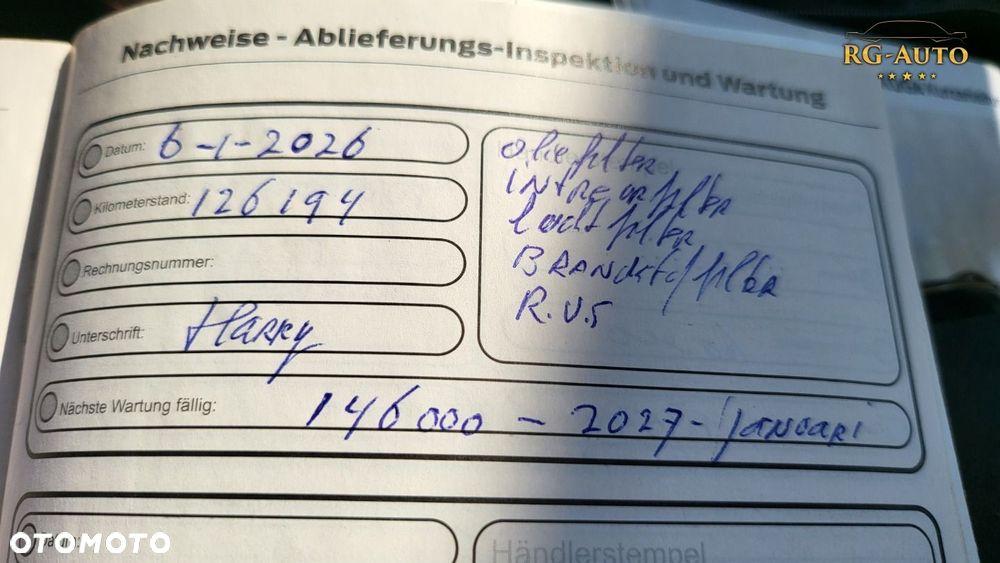 Nachweise - Ablieferungs-Inspektion und Wartung
RG-AUTO
Datum: 6-1-2026
Kilometerstand: 126194
Rechnungsnummer:
Unterschrift: Harry
oliefilter
INTREURfilter
luchtfilter
BRANDstoffilter
R.V.S
Nächste Wartung fällig: 146000 - 2027 - januari
Datum:
Händlerstempel
OTOMOTO